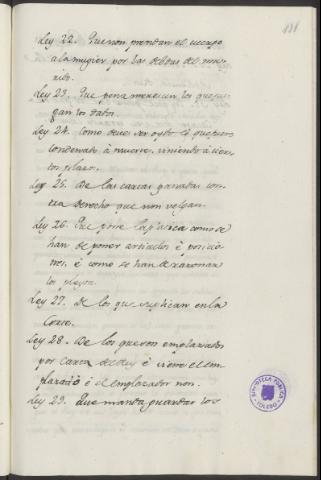 131
Ley 22. Que non prendan el cuerpo
a la muger por las debdas del ma-
rido.
Ley 23. Que pena merecen los que jue-
gan los dados.
Ley 24. Como deve ser oydo el que fuere
condenado à muerte, viniendo à cier-
to plazo.
Ley 25. De las cartas ganadas con-
tra derecho que non valgan.
Ley 26. Que pone la pena como se
han de poner articulos è posicio-
nes, è como se han de razonar
los pleytos.
Ley 27. De los que suplican en la
Corte.
Ley 28. De los que son emplazados
por Carta del Rey è viene el em-
plazado è el emplazador non.
Ley 29. Que manda guardar los
BIBLIOTECA PUBLICA
TOLEDO